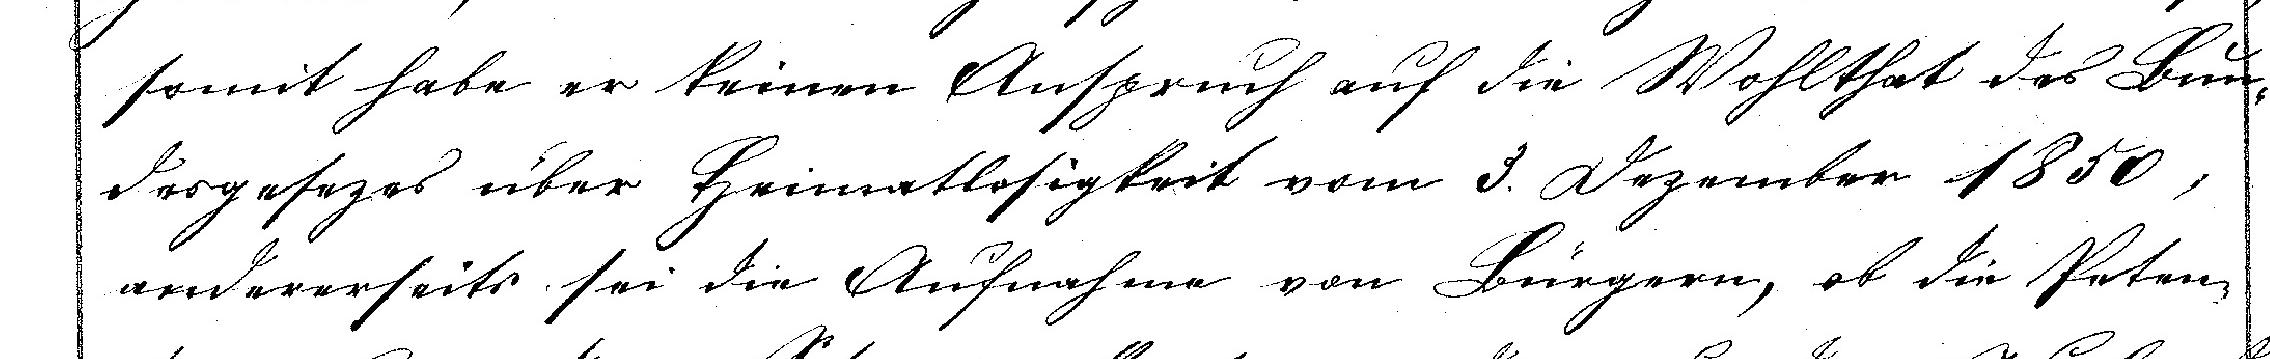 somit habe er keinen Anspruch auf die Wohlthat des Bun-
desgesezes über Heimatlosigkeit vom 3. Dezember 1850,
andererseits sei die Aufnahme von Bürgern, ob die Peten-